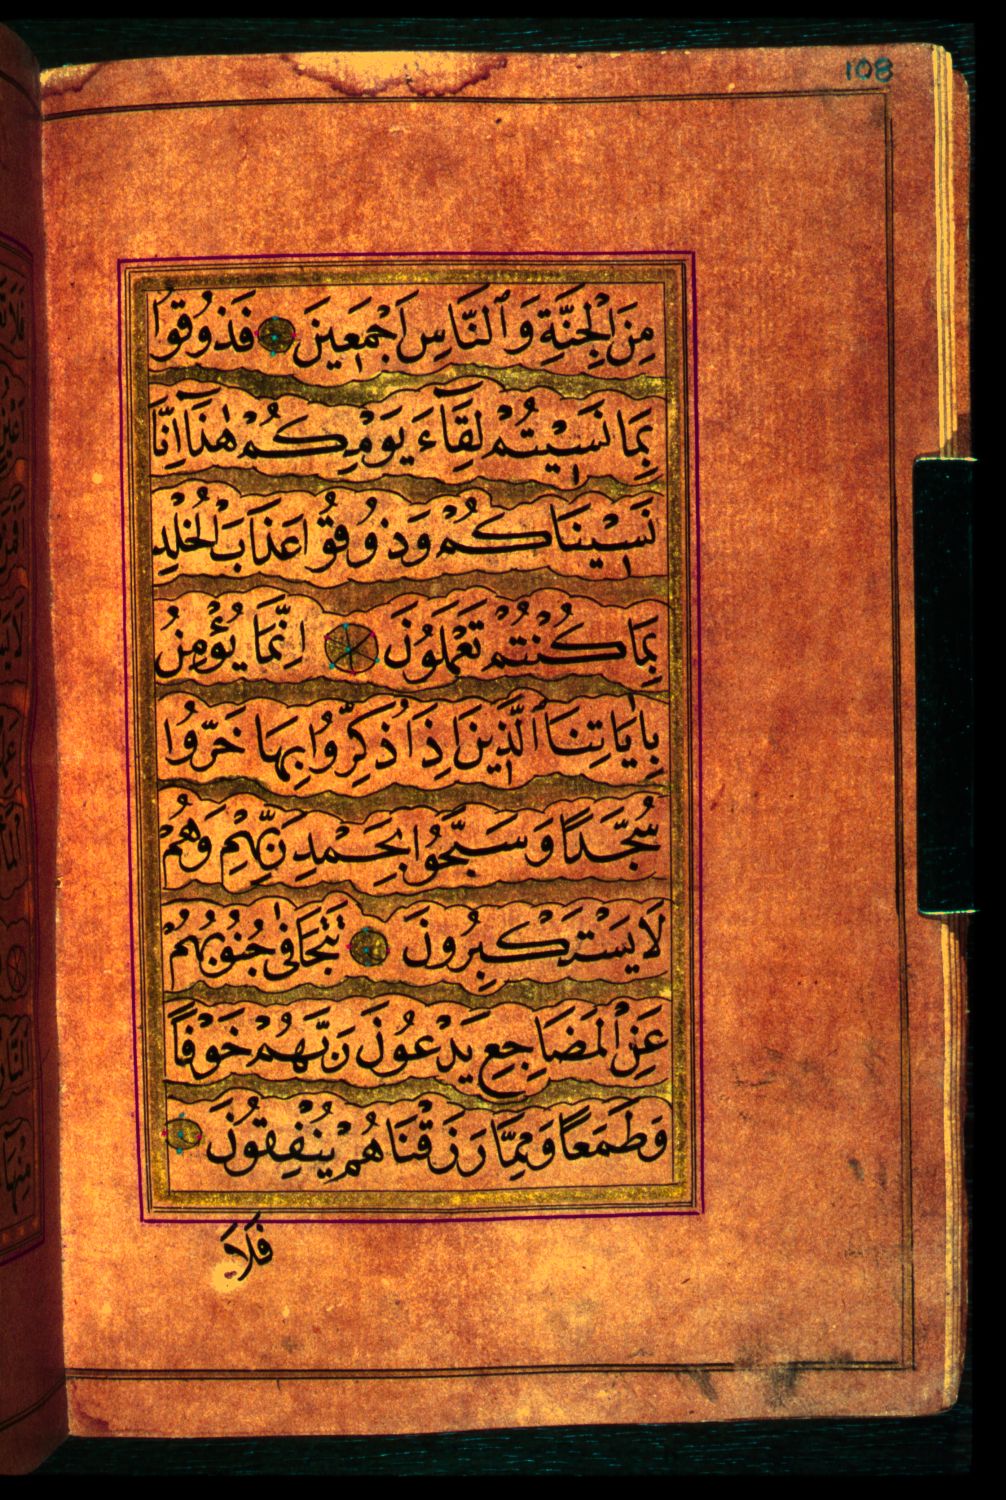 108
مِنَ الْجِنَّةِ وَالنَّاسِ اَجْمَعِينَ فَذُوقُوا
بِمَا نَسِيتُمْ لِقَآءَ يَوْمِكُمْ هٰذَآ اِنَّا
نَسِينَاكُمْ وَذُوقُوا عَذَابَ الْخُلْدِ
بِمَا كُنْتُمْ تَعْمَلُونَ اِنَّمَا يُؤْمِنُ
بِاٰيَاتِنَا الَّذِينَ اِذَا ذُكِّرُوا بِهَا خَرُّوا
سُجَّدًا وَسَبَّحُوا بِحَمْدِ رَبِّهِمْ وَهُمْ
لَا يَسْتَكْبِرُونَ تَتَجَافٰى جُنُوبُهُمْ
عَنِ الْمَضَاجِعِ يَدْعُونَ رَبَّهُمْ خَوْفًا
وَطَمَعًا وَمِمَّا رَزَقْنَاهُمْ يُنْفِقُونَ
فَلَا